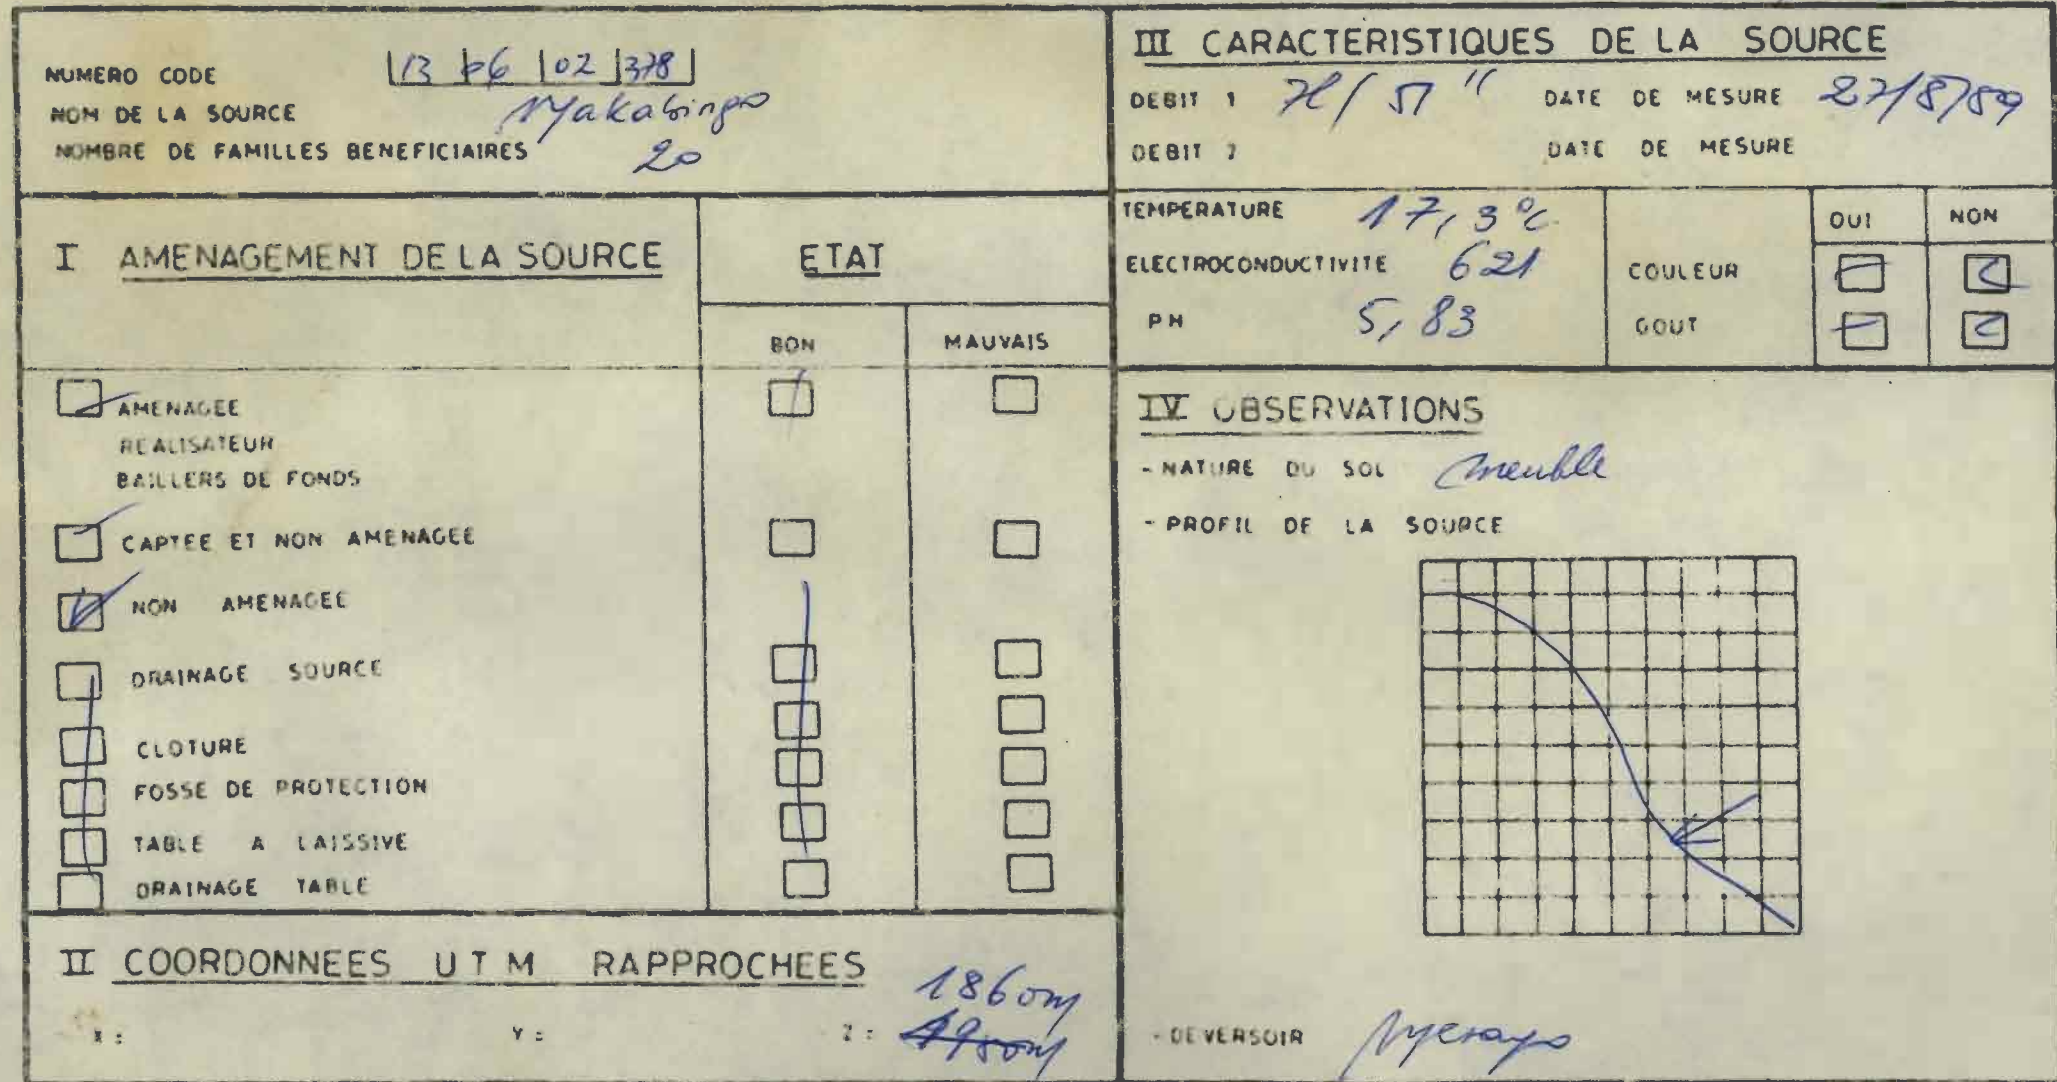 NUMERO CODE |13|06|02|378|
NOM DE LA SOURCE Nyakabingo
NOMBRE DE FAMILLES BENEFICIAIRES 20
I AMENAGEMENT DE LA SOURCE
ETAT
BON MAUVAIS
AMENAGEE
REALISATEUR
BAILLERS DE FONDS
CAPTEE ET NON AMENAGEE
NON AMENAGEE
DRAINAGE SOURCE
CLOTURE
FOSSE DE PROTECTION
TABLE A LAISSIVE
DRAINAGE TABLE
II COORDONNEES UTM RAPPROCHEES
1860m
X : Y : Z :
III CARACTERISTIQUES DE LA SOURCE
DEBIT 1 DATE DE MESURE 27/8/89
DEBIT 2 DATE DE MESURE
TEMPERATURE 17,3°C
ELECTROCONDUCTIVITE 621
PH 5,83
OUI NON
COULEUR
GOUT
IV OBSERVATIONS
- NATURE DU SOL meuble
- PROFIL DE LA SOURCE
- DEVERSOIR